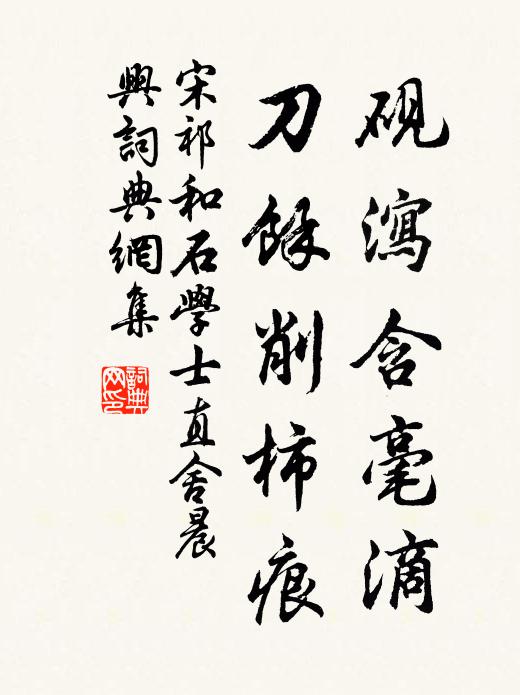 硯瀉含毫滴
刀餘削柿痕
宋祁和石學士直舍晨
興詞典網集
詞典
网印